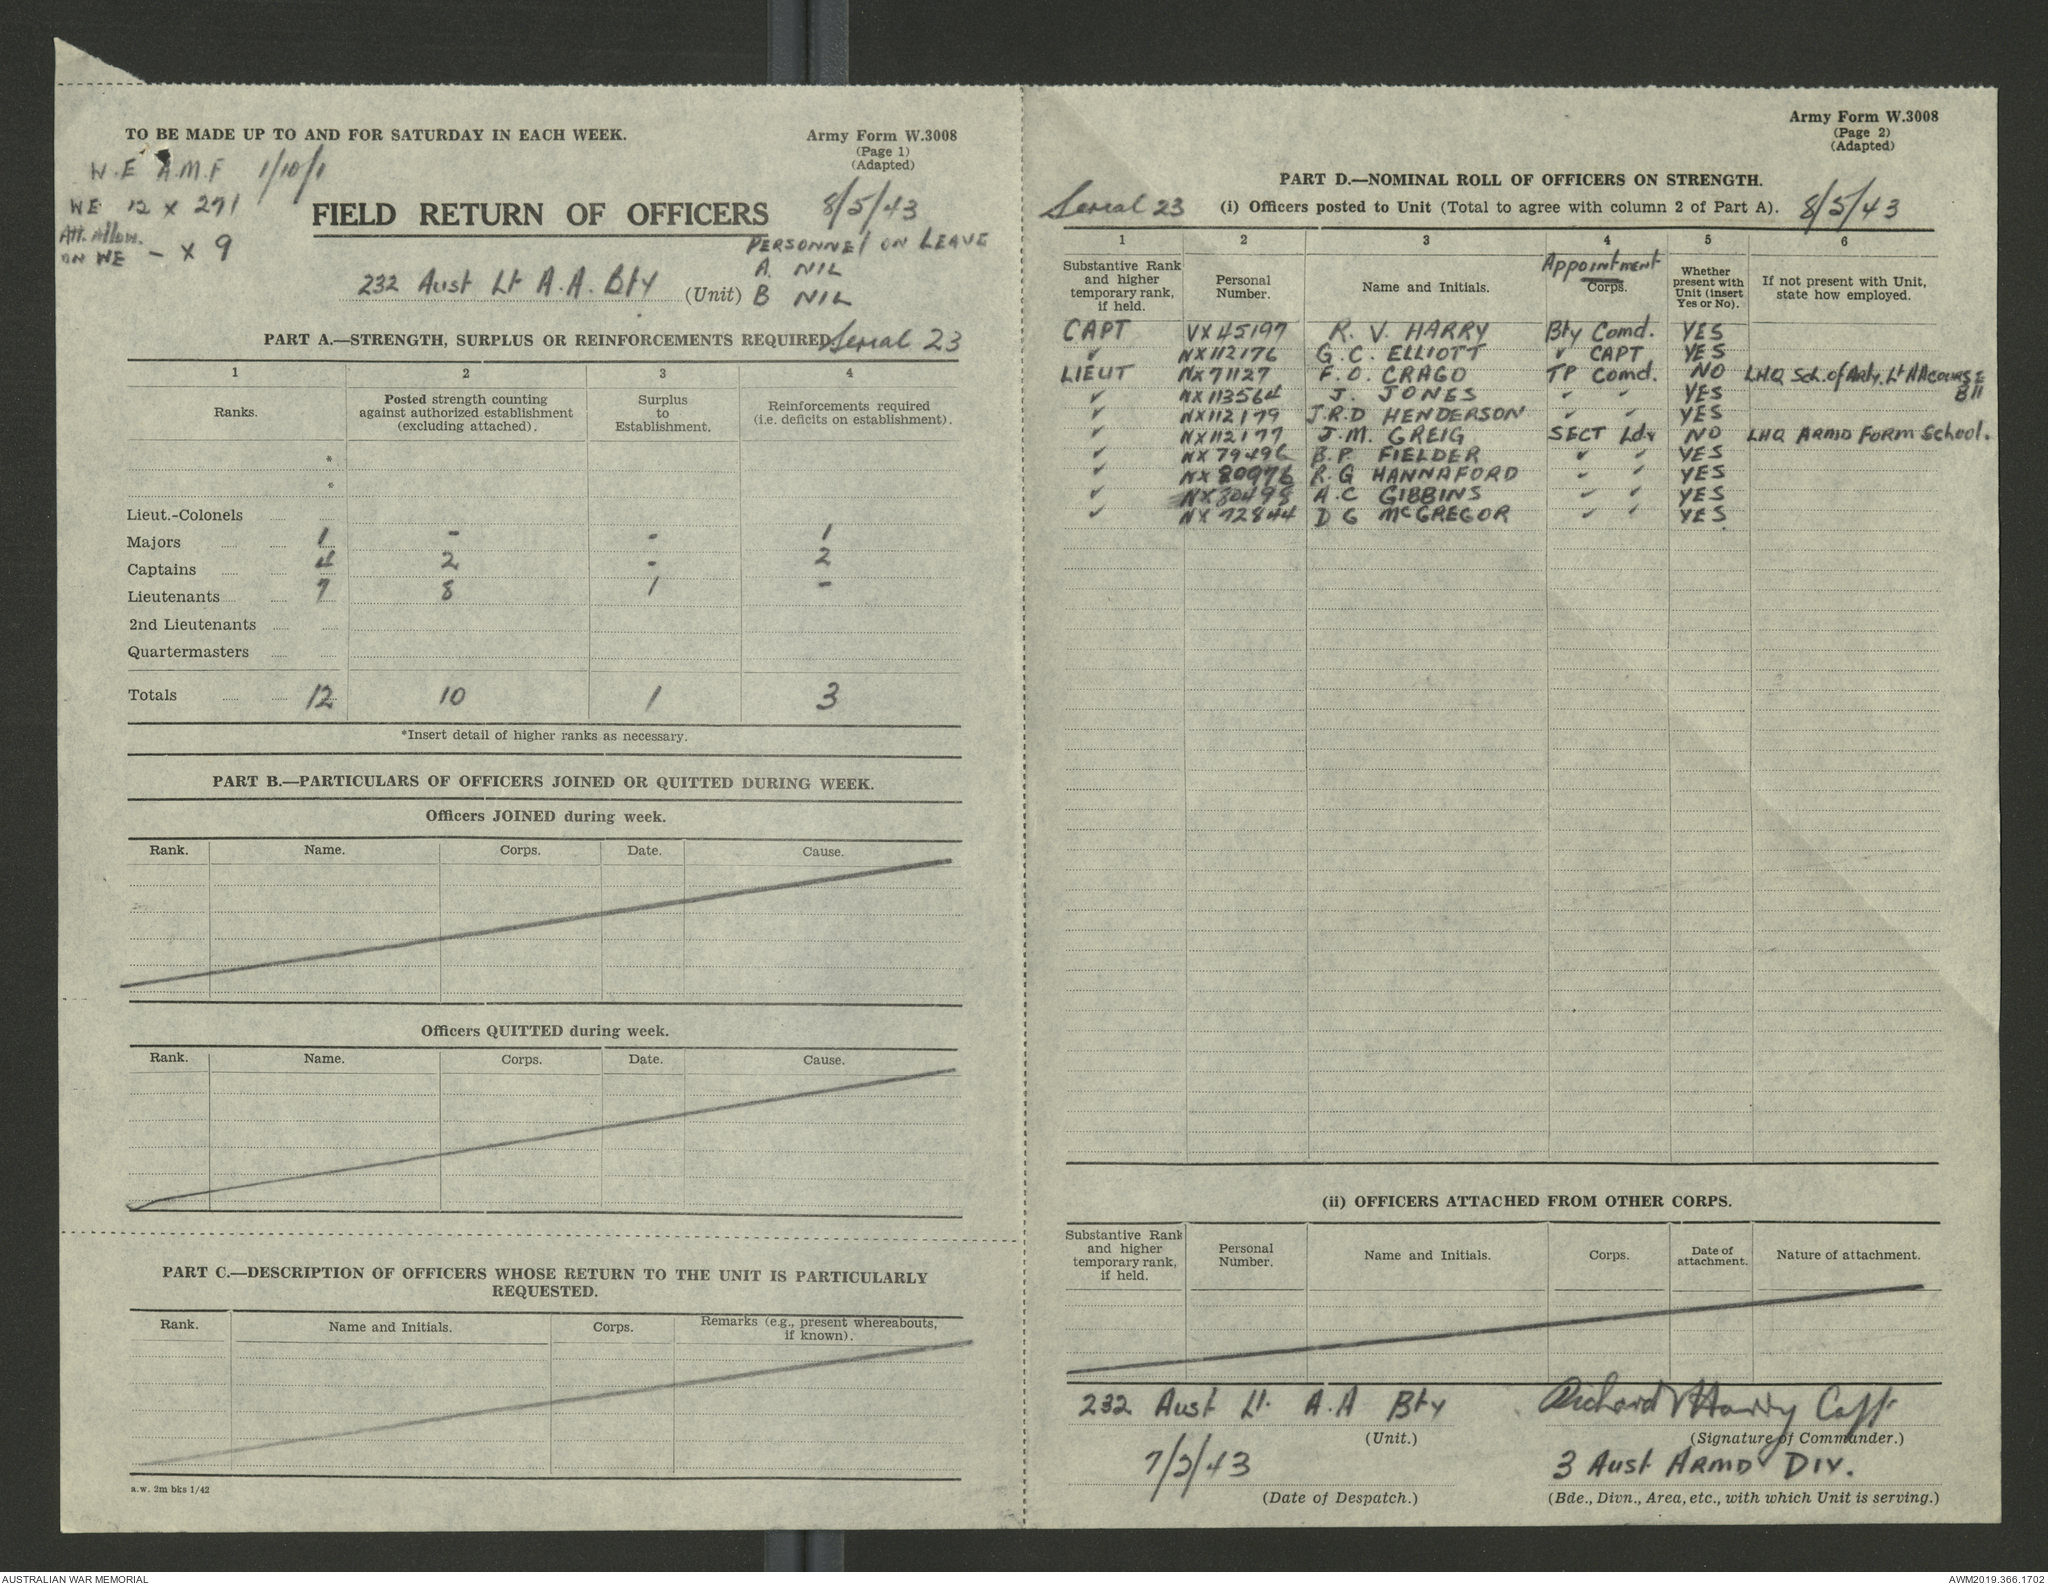 TO BE MADE UP TO AND FOR SATURDAY IN EACH WEEK.
Army Form W.3008
(Page 1)
(Adapted)
W.E A.M.F 1/10/1
WE 12 x 291
Att. Allow.
ON WE - x 9
FIELD RETURN OF OFFICERS
8/5/43
PERSONNEL ON LEAVE
A. NIL
B NIL
232 Aust Lt A.A. Bty (Unit)
PART A.—STRENGTH, SURPLUS OR REINFORCEMENTS REQUIRED Serial 23
1 2 3 4
Ranks. Posted strength counting against authorized establishment (excluding attached). Surplus to Establishment. Reinforcements required (i.e. deficits on establishment).
*
*
Lieut.-Colonels
Majors 1 - - 1
Captains 4 2 - 2
Lieutenants 7 8 1 -
2nd Lieutenants
Quartermasters
Totals 12 10 1 3
*Insert detail of higher ranks as necessary.
PART B.—PARTICULARS OF OFFICERS JOINED OR QUITTED DURING WEEK.
Officers JOINED during week.
Rank. Name. Corps. Date. Cause.
Officers QUITTED during week.
Rank. Name. Corps. Date. Cause.
PART C.—DESCRIPTION OF OFFICERS WHOSE RETURN TO THE UNIT IS PARTICULARLY
REQUESTED.
Rank. Name and Initials. Corps. Remarks (e.g., present whereabouts, if known).
a.w. 2m bks 1/42
Army Form W.3008
(Page 2)
(Adapted)
PART D.—NOMINAL ROLL OF OFFICERS ON STRENGTH.
Serial 23 (i) Officers posted to Unit (Total to agree with column 2 of Part A). 8/5/43
1 2 3 4 5 6
Substantive Rank and higher temporary rank, if held. Personal Number. Name and Initials. Appointment Corps. Whether present with Unit (insert Yes or No). If not present with Unit, state how employed.
CAPT VX45197 R. V. HARRY Bty Comd. YES
✓ NX112176 G.C. ELLIOTT ✓ CAPT YES
LIEUT NX71127 F.O. CRAGO TP Comd. NO LHQ Sch. of Arty. Lt AA COURSE
✓ NX113564 J. JONES ✓ ✓ YES B11
✓ NX112179 J.R.D HENDERSON ✓ ✓ YES
✓ NX112177 J.M. GREIG SECT Ldr NO LHQ ARMD FORM School.
✓ NX79496 B.P. FIELDER ✓ ✓ YES
✓ NX80976 R.G HANNAFORD ✓ ✓ YES
✓ NX80498 A.C GIBBINS ✓ ✓ YES
✓ NX72844 D G McGREGOR ✓ ✓ YES
(ii) OFFICERS ATTACHED FROM OTHER CORPS.
Substantive Rank and higher temporary rank, if held. Personal Number. Name and Initials. Corps. Date of attachment. Nature of attachment.
232 Aust Lt. A.A Bty
(Unit.)
Richard V Harry Capt
(Signature of Commander.)
7/5/43
(Date of Despatch.)
3 Aust ARMD DIV.
(Bde., Divn., Area, etc., with which Unit is serving.)
AUSTRALIAN WAR MEMORIAL
AWM2019.366.1702